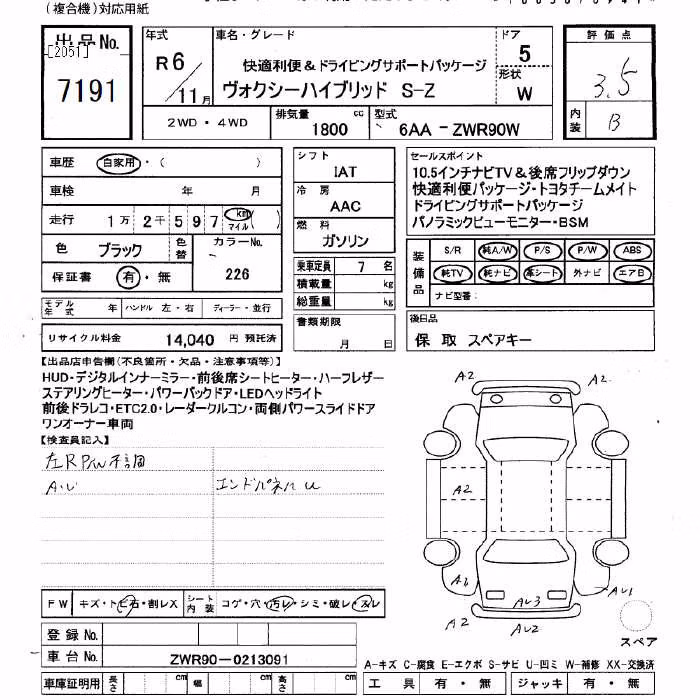 (複合機)対応用紙
出品No.
[2051]
7191
年式
R6/11月
車名・グレード
快適利便&ドライビングサポートパッケージ
ヴォクシーハイブリッド S-Z
ドア
5
形状
W
評価点
3.5
内装
B
2WD・4WD
排気量
1800 cc
型式
6AA-ZWR90W
車歴 自家用・( )
車検 年 月
走行 1万2千597 km マイル ( )
色 ブラック
色替
カラーNo.
226
保証書 有・無
モデル年式 年 ハンドル 左・右 ディーラー・並行
リサイクル料金 14,040 円 預託済
シフト
IAT
冷房
AAC
燃料
ガソリン
乗車定員 7 名
積載量 kg
総重量 kg
書類期限
月 日
セールスポイント
10.5インチナビTV&後席フリップダウン
快適利便パッケージ・トヨタチームメイト
ドライビングサポートパッケージ
パノラミックビューモニター・BSM
装備品
S/R 純A/W P/S P/W ABS
純TV 純ナビ 革シート 外ナビ エアB
ナビ型番:
後日品
保 取 スペアキー
【出品店申告欄(不良箇所・欠品・注意事項等)】
HUD・デジタルインナーミラー・前後席シートヒーター・ハーフレザー
ステアリングヒーター・パワーバックドア・LEDヘッドライト
前後ドラレコ・ETC2.0・レーダークルコン・両側パワースライドドア
ワンオーナー車両
【検査員記入】
左R P/W不調
A・U
エンドパネルU
FW キズ・トビ石・割レX
シート内装 コゲ・穴・汚レ・シミ・破レ・スレ
登録No.
車台No. ZWR90-0213091
車庫証明用 長さ cm 幅 cm 高さ cm
A2
A2
A2
A2
AU3
AU2
AU1
スペア
A-キズ C-腐食 E-エクボ S-サビ U-凹ミ W-補修 XX-交換済
工具 有・無 ジャッキ 有・無